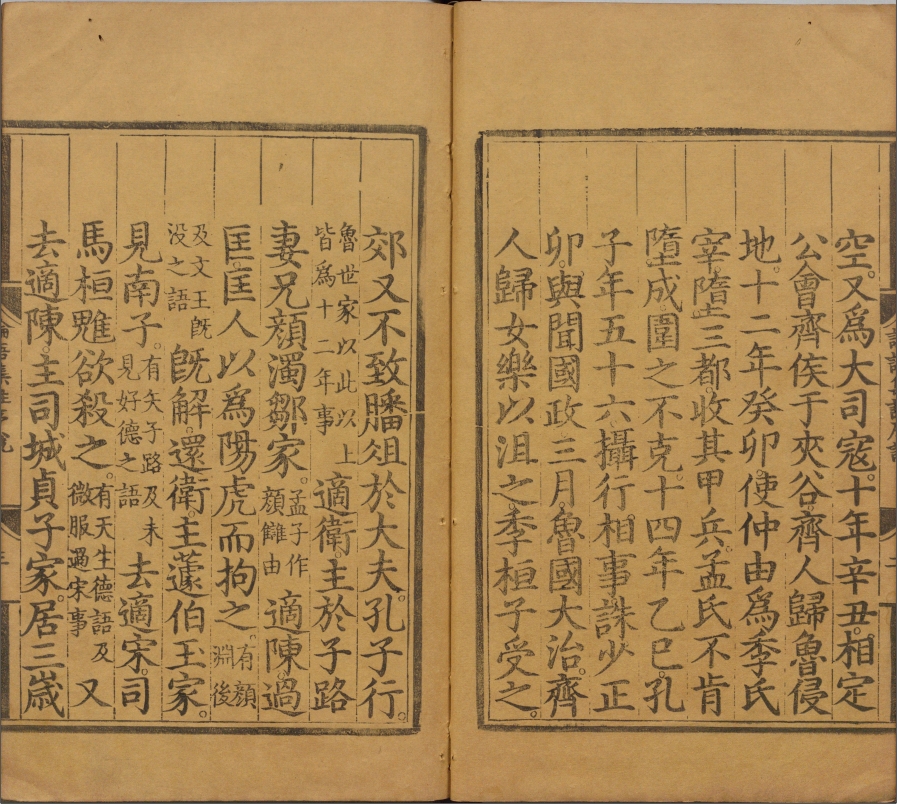 空。又爲大司寇。十年辛丑。相定
公會齊侯于夾谷。齊人歸魯侵
地。十二年癸卯。使仲由爲季氏
宰。隳三都。收其甲兵。孟氏不肯
墮成。圍之不克。十四年乙巳。孔
子年五十六。攝行相事。誅少正
卯。與聞國政三月。魯國大治。齊
人歸女樂以沮之。季桓子受之。
郊又不致膰俎於大夫。孔子行。
魯世家以此以上
皆爲十二年事
適衛。主於子路
妻兄顏濁鄒家。
孟子作
顏讎由
適陳。過
匡。匡人以爲陽虎而拘之。
有顏
淵後
及文王既
没之語
既解。還衛。主蘧伯玉家。
見南子。
有矢子路及未
見好德之語
去適宋。司
馬桓魋欲殺之。
有天生德語及
微服過宋事
又
去適陳。主司城貞子家。居三歲